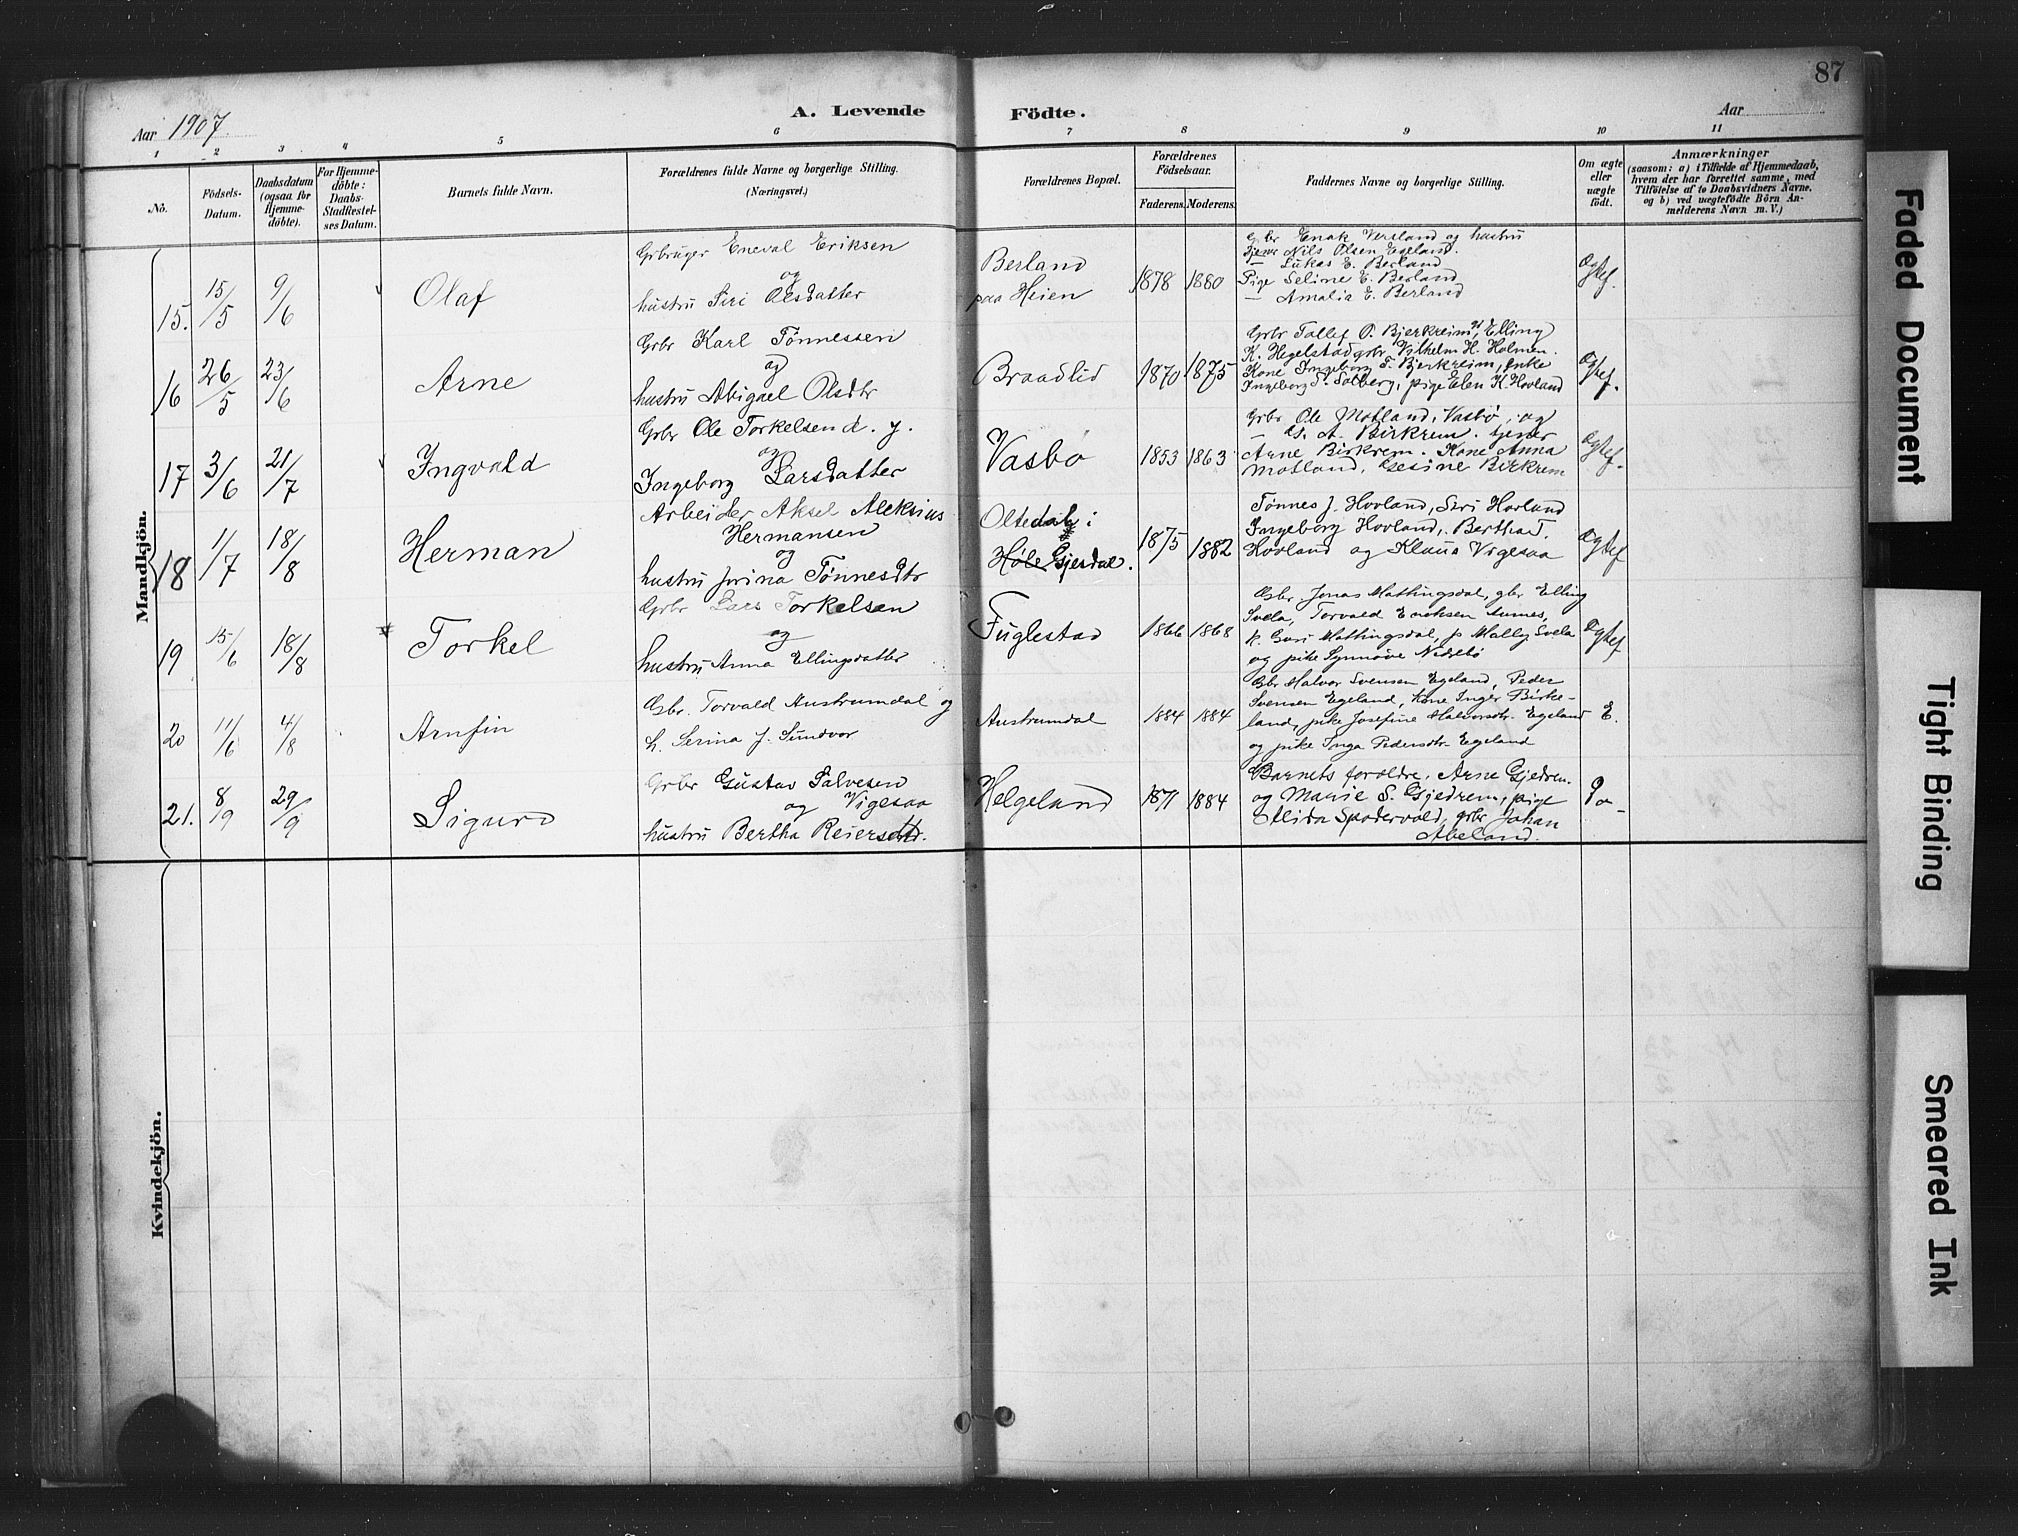 87
Aar 1907.
A. Levende Födte.
Aar
1 2 3 4 5 6 7 8 9 10 11
No.
Födsels-Datum.
Daabsdatum (ogsaa for Hjemme-döbte).
For Hjemme-döbte: Daabs-Stadfæstel-ses Datum.
Barnets fulde Navn.
Forældrenes fulde Navne og borgerlige Stilling.
(Næringsvei.)
Forældrenes Bopæl.
Forældrenes Födselsaar.
Faderens. Moderens.
Faddernes Navne og borgerlige Stilling.
Om ægte eller uægte født.
Anmærkninger
(saasom: a) i Tilfælde af Hjemmedaab,
hvem der har forrettet samme, med
Tilföielse af to Daabsvidners Navne,
og b) ved uægtefödte Börn An-
melderens Navn m. V.)
Mandkjön.
15. 15/5 9/6 Olaf
Grbruger Eneval Eriksen
og
hustru Siri Olsdatter
Berland
paa Heien
1878 1880
Grbr Enok Versland og hustru
Tjener Nils Olsen Egeland.
— Lukas E. Berland
Pige Seline E. Berland
— Amalia E. Berland
Ægtef.
16 26/5 23/6 Arne
Grbr Karl Tönnessen
og
hustru Abigael Olsdtr
Braadlid
1870 1875
Grbr Tollef O. Bjerkreim, Elling
K. Hegelstad grbr Vilhelm H. Holmen.
Kone Ingeborg T. Bjerkreim, enke
Ingeborg S. Solberg, pige Elen K. Hovland
Ægtef.
17 3/6 21/7 Ingvald
Grbr Ole Torkelsen d. y.
og
Ingeborg Larsdatter
Vasbø
1853 1863
Grbr Ole Motland, Vasbø, og
— A. Birkrem. tjener
Arne Birkrem. Kone Anna
Motland, Gesine Birkrem
Ægtef.
18 1/7 18/8 Herman
Arbeider Aksel Aleksius
Hermansen
og
hustru Jorina Tönnesdtr
Oltedal i
Høle Gjesdal.
1875 1882
Tønnes J. Hovland, Siri Hovland
Ingeborg Hovland, Bertha T.
Hovland og Klaus Vigesaa
Ægtef
19 15/6 18/8 Torkel
Grbr Lars Torkelsen
og
hustru Anna Ellingsdatter
Fuglestad
1866 1868
Gbr. Jonas Mattingsdal, gbr Elling
Svela, Torvald Eriksen Aunes,
k. Guri Mattingsdal, p Mally Svela
og pike Synnöve Nedrebö
Ægtef
20 11/6 4/8 Arnfin
Gbr. Torvald Austrumdal og
h. Serina J. Sundvor
Austrumdal
1884 1884
Gbr Halvor Svensen Egeland, Peder
Svensen Egeland, kone Inger Birke-
land, pike Josefine Halvorsdtr. Egeland
og pike Inga Pedersdtr Egeland
E.
21. 8/9 29/9 Sigurd
Grbr Gustav Salvesen
og Vigesaa
hustru Bertha Reiersdtr.
Helgeland
1871 1884
Barnets forældre, Arne Gjedrem.
og Marie S. Gjedrem, pige
Alida Spodervold, grbr Johan
Abeland.
Kvindekjön.
Faded Document
Tight Binding
Smeared Ink